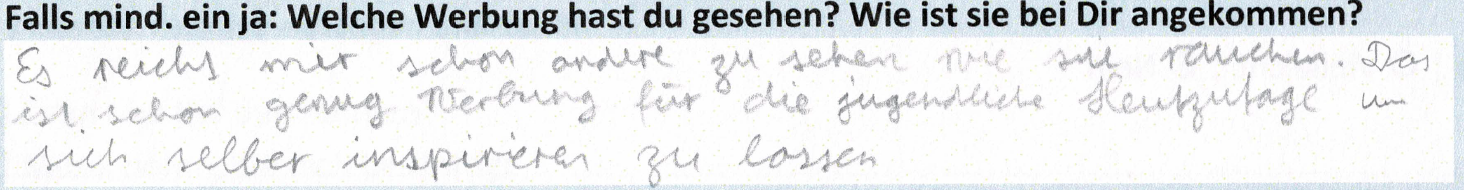 Falls mind. ein ja: Welche Werbung hast du gesehen? Wie ist sie bei Dir angekommen?
Es reicht mir schon andere zu sehen wie sie rauchen. Das
ist schon genug Werbung für die jugendliche Heutzutage um
sich selber inspirieren zu lassen